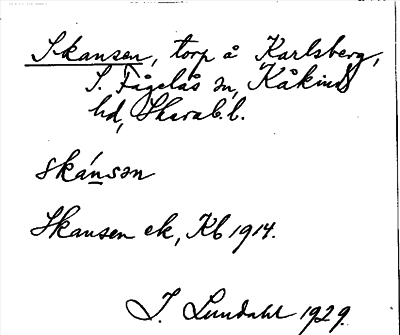 Skansen, torp å Karlsberg,
S. Fågelås sn, Kåkinds
hd, Skarab. l.
skánsən
Skansen ek, Kb 1914.
I. Lundahl 1929.